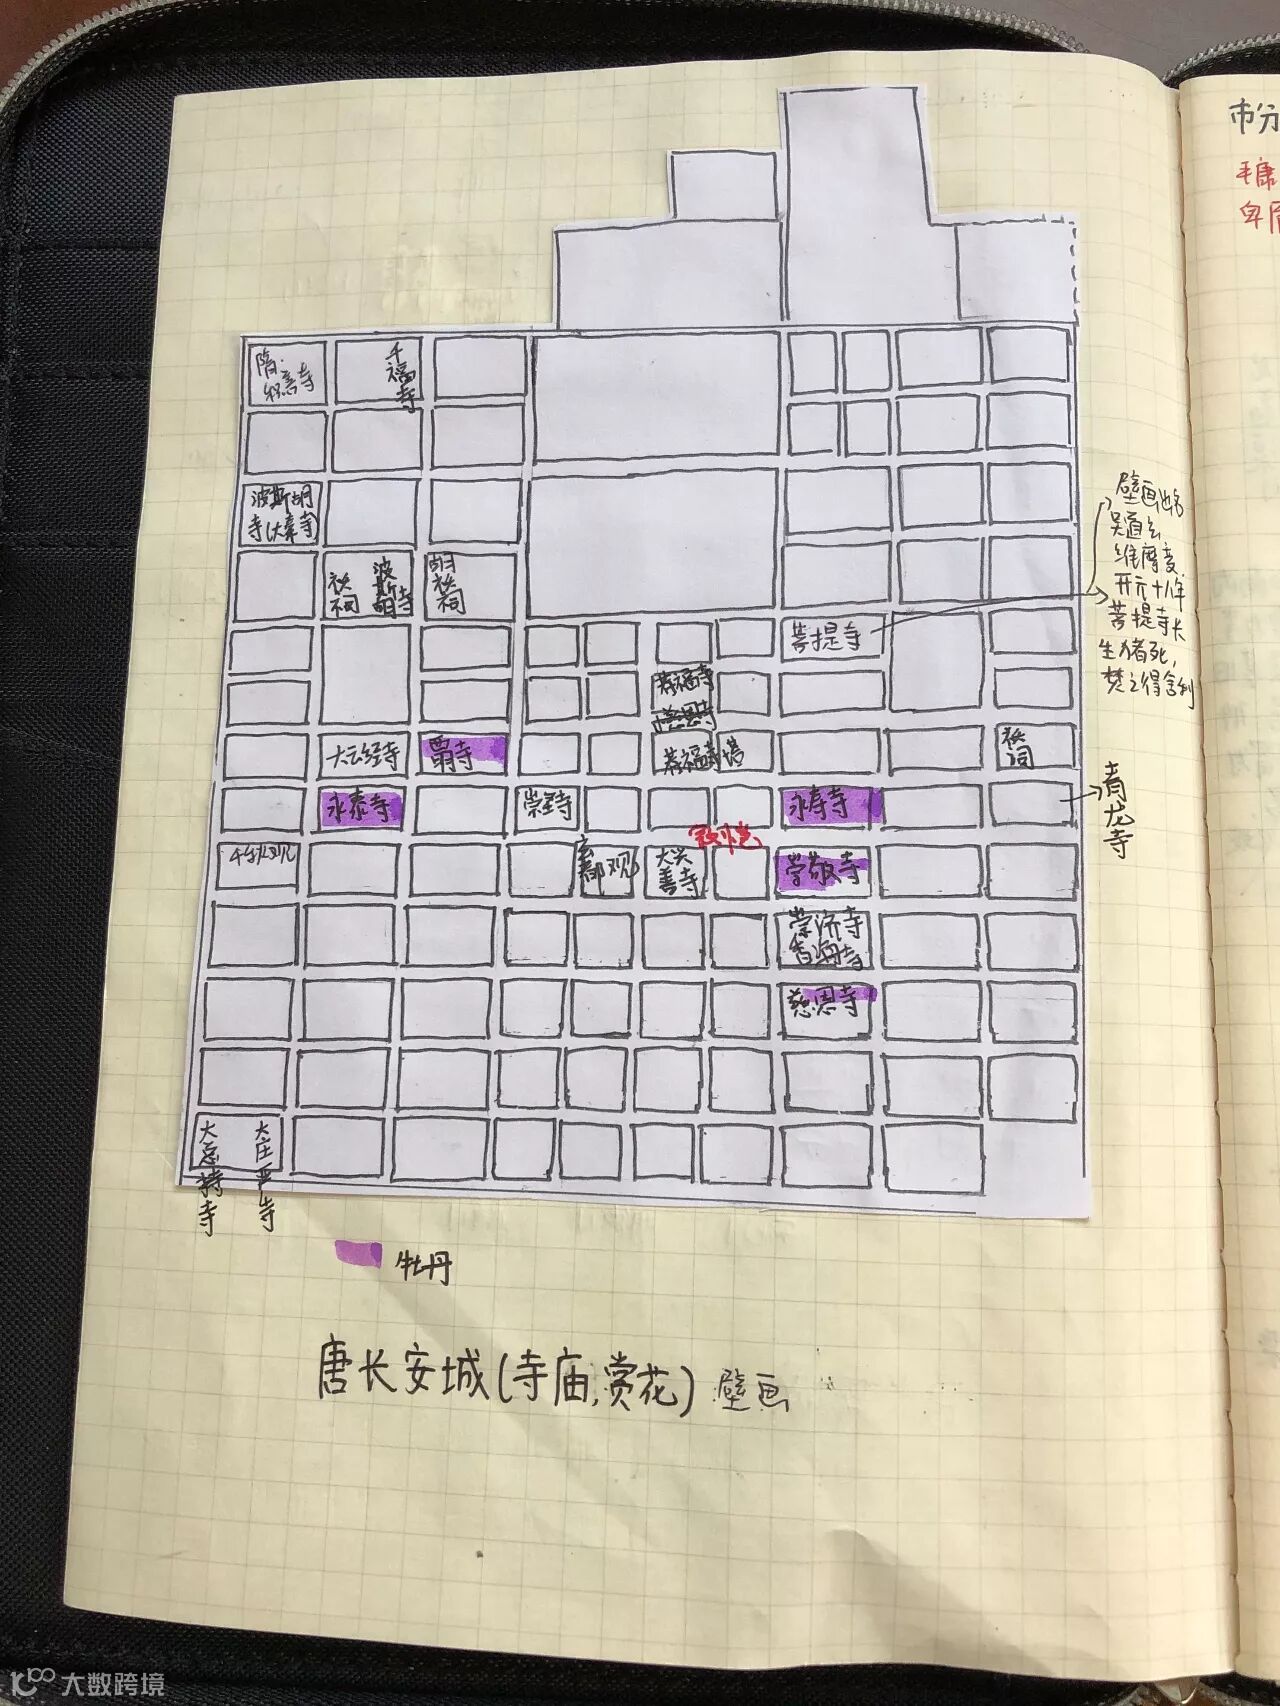 市分
隋·
积善寺
千福寺
波斯胡
寺(大秦寺
祆祠
波斯胡寺
胡祆祠
菩提寺
壁画出名
吴道玄
维摩变
开元十八年
菩提寺长
生猪死,
焚之得舍利
荐福寺
荐福寺塔
大云经寺
祆祠
永泰寺
崇圣寺
永寿寺
青龙寺
玄都观
大兴善寺
崇敬寺
崇济寺
慈恩寺
大总持寺
大庄严寺
牡丹
唐长安城(寺庙,赏花) 壁画
大数跨境